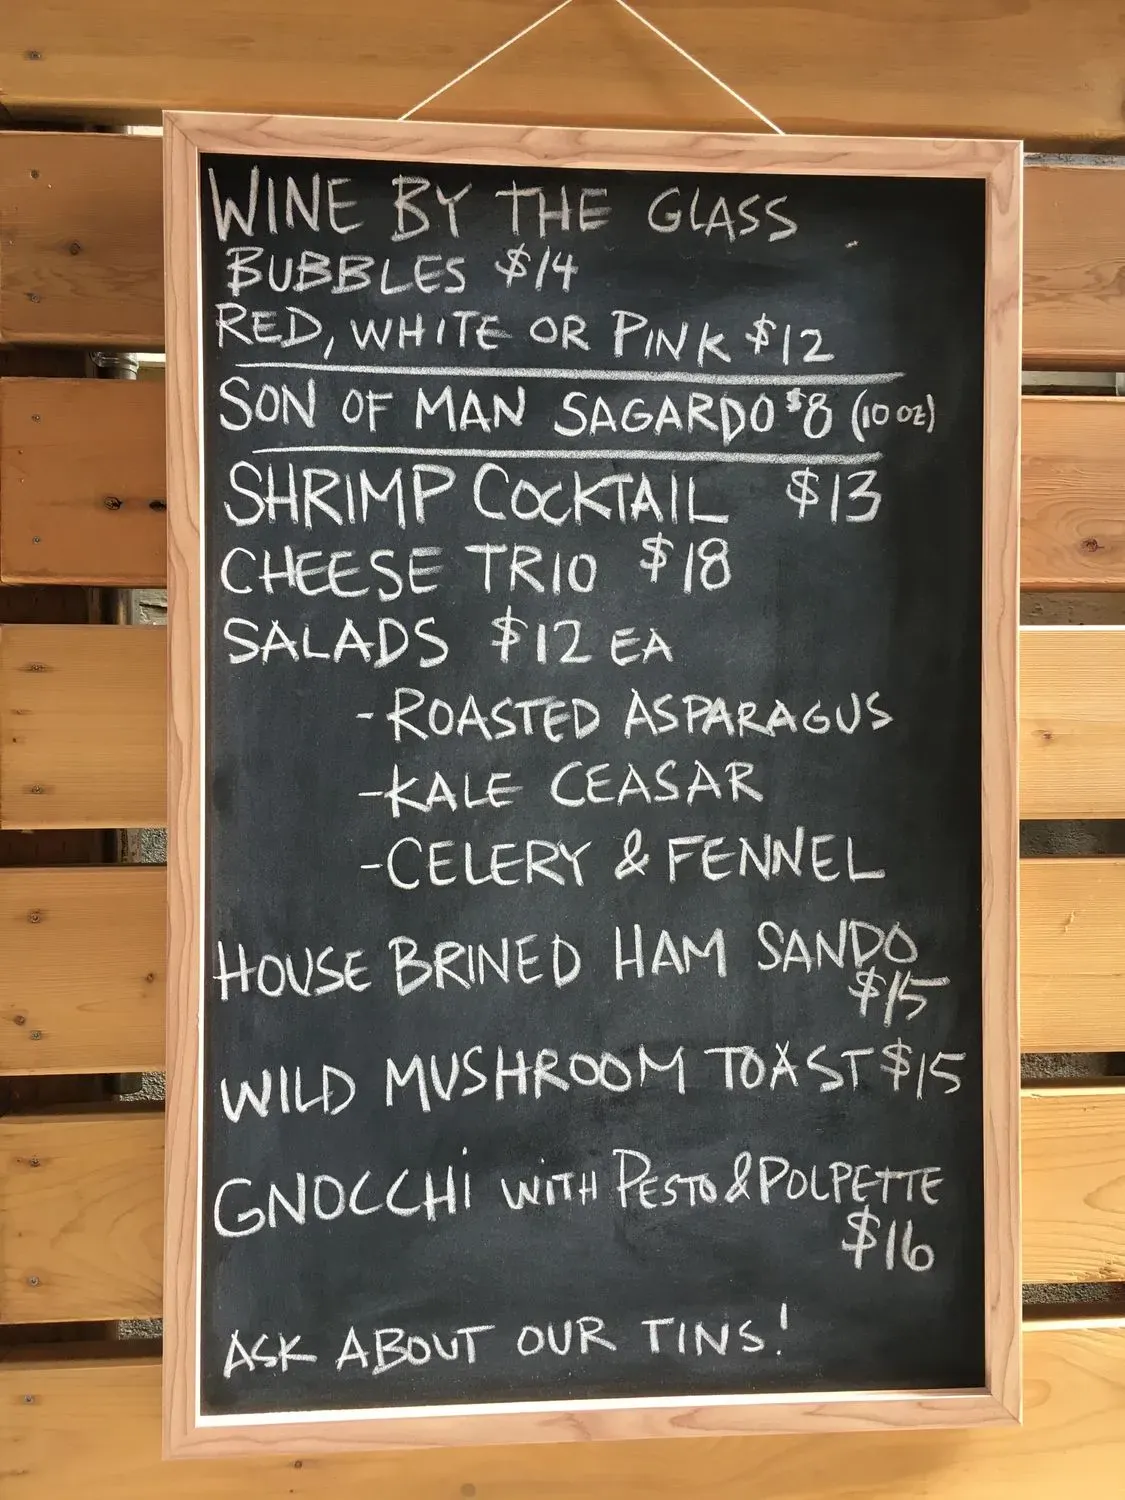 WINE BY THE GLASS
BUBBLES $14
RED, WHITE OR PINK $12
SON OF MAN SAGARDO $8 (10 OZ)
SHRIMP COCKTAIL $13
CHEESE TRIO $18
SALADS $12 EA
-ROASTED ASPARAGUS
-KALE CEASAR
-CELERY & FENNEL
HOUSE BRINED HAM SANDO
$15
WILD MUSHROOM TOAST $15
GNOCCHi WiTH PESTO & POLPETTE
$16
ASK ABOUT OUR TINS!